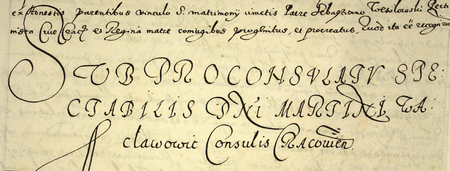 ex honestis parentibus vinculo S. matrimonij iunctis Patre Sebastiano
Cive Cracov et Regina matre coniugibus progenitus, et procreatus, Quod ita esse
SUB PROCONSULATU SPE:
CTABILIS DNI MARTINI WA:
clawowic Consulis Cracovien